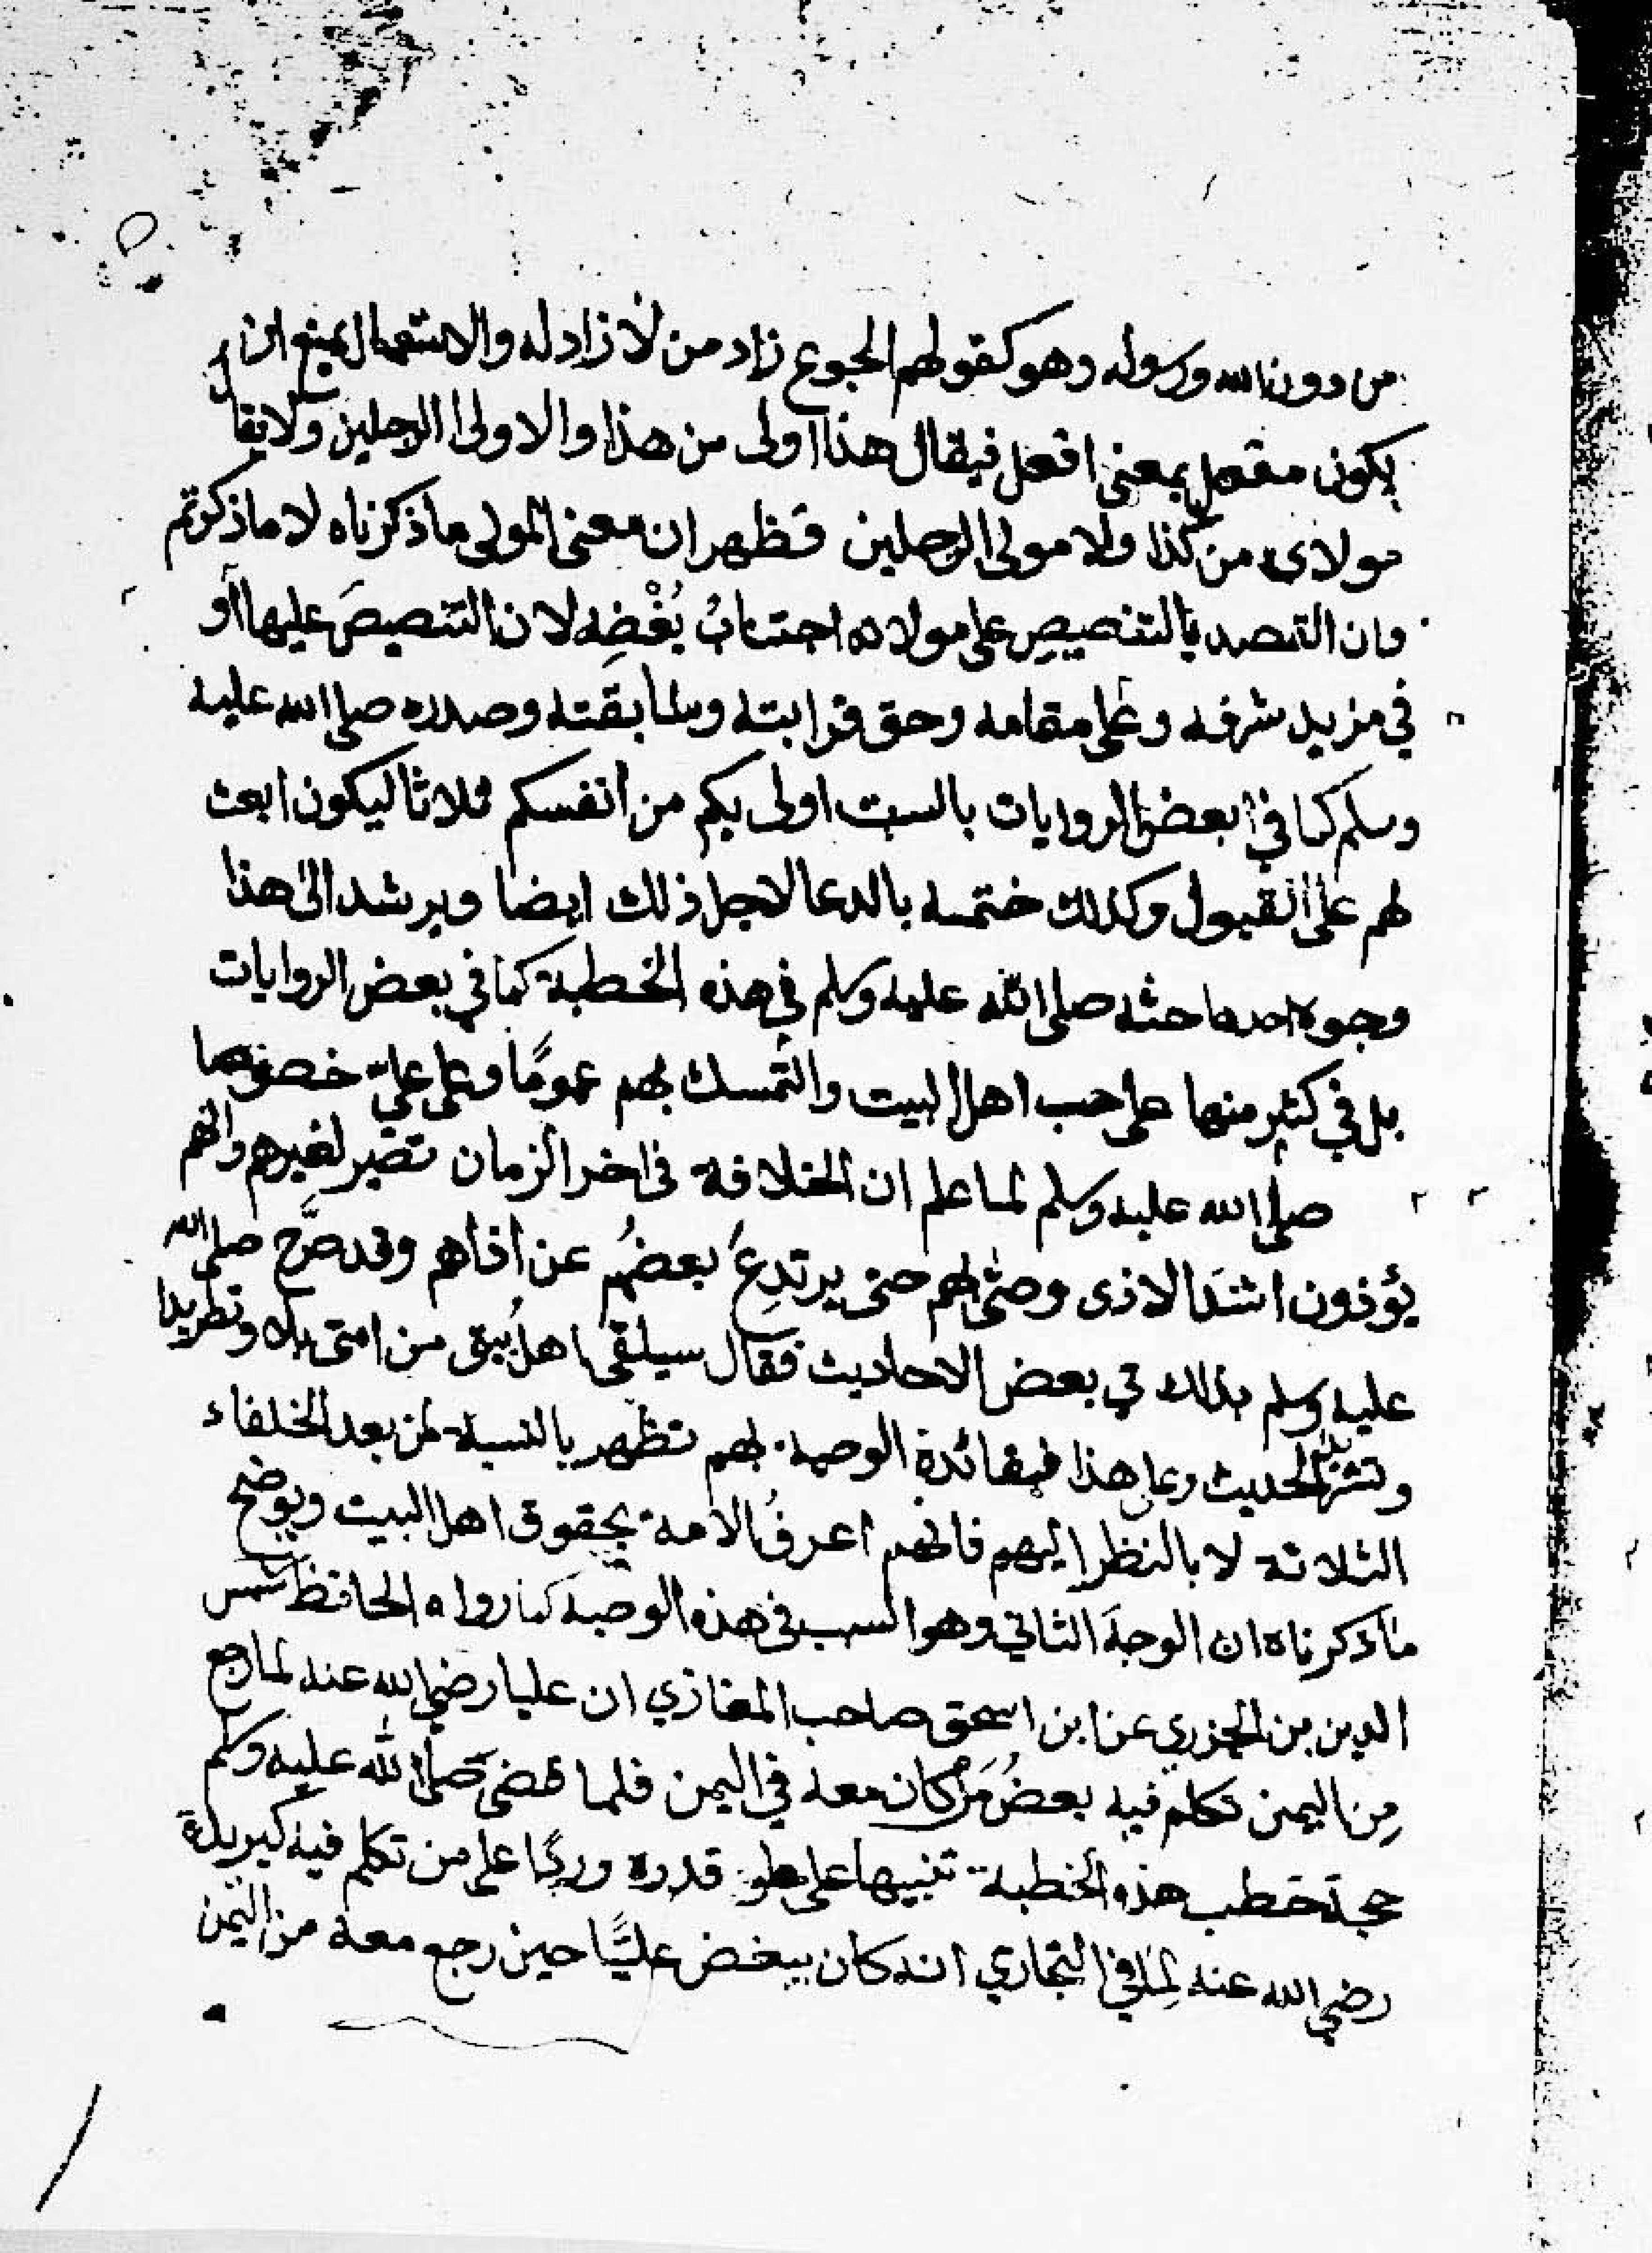 من دون الله ورسوله وهو كقولهم الجوع زاد من لا زاد له والاستعمال يمنع ان
يكون مفعل بمعنى افعل فيقال هذا اولى من هذا والاولى الرجلين ولا يقال
مولاى من كذا ولا مولى الرجلين فظهر ان معنى المولى ما ذكرناه لا ما ذكرتم
وان القصد بالتنصيصِ على مولاه اجتنابُ بُغْضِه لان التنصيصَ عليها اَو
في مزيد شرفه وعلى مقامه وحق قرابته وسابقته وصدره صلى الله عليه
وسلم كما في بعض الروايات بالست اولى بكم من انفسكم ثلاثا ليكون ابعث
لهم على القبول وكذلك ختمه بالدعا لاجل ذلك ايضا ويرشد الى هذا
وجوه احدها حثه صلى الله عليه وسلم في هذه الخطبة كما في بعض الروايات
بل في كثير منها على حب اهل البيت والتمسك بهم عمومًا وعلى عليّ خصوصا
صلى الله عليه وسلم لما علم ان الخلافة في اخر الزمان تصير لغيرهم وانهم
يؤذون اشدَ الاذى وصّى لهم حتى يرتدِعَ بعضُهم عن اذاهم وقد صرَّح صلى الله
عليه وسلم بذلك في بعض الاحاديث فقال سيلقى اهلُ بيتي من امتي بلاء وتطريدا
وتشريدا الحديث وعلى هذا ففائدة الوصية بهم تظهر بالنسبة لمن بعد الخلفاء
الثلاثة لا بالنظر اليهم فانهم اعرفُ الامة بحقوق اهل البيت ويوضح
ما ذكرناه ان الوجهَ الثاني وهو السبب في هذه الوصية كما رواه الحافظ شمس
الدين بن الجزري عن ابن اسحق صاحب المغازي ان عليا رضي الله عنه لما رجع
مِن اليمن تكلم فيه بعضُ مَن كان معه في اليمن فلما قضى صلى الله عليه وسلم
حجته خطب هذه الخطبة تنبيها على قدره وردًا على من تكلم فيه كبريدة
رضي الله عنه لما في البخاري انه كان يبغض عليًّا حين رجع معه من اليمن